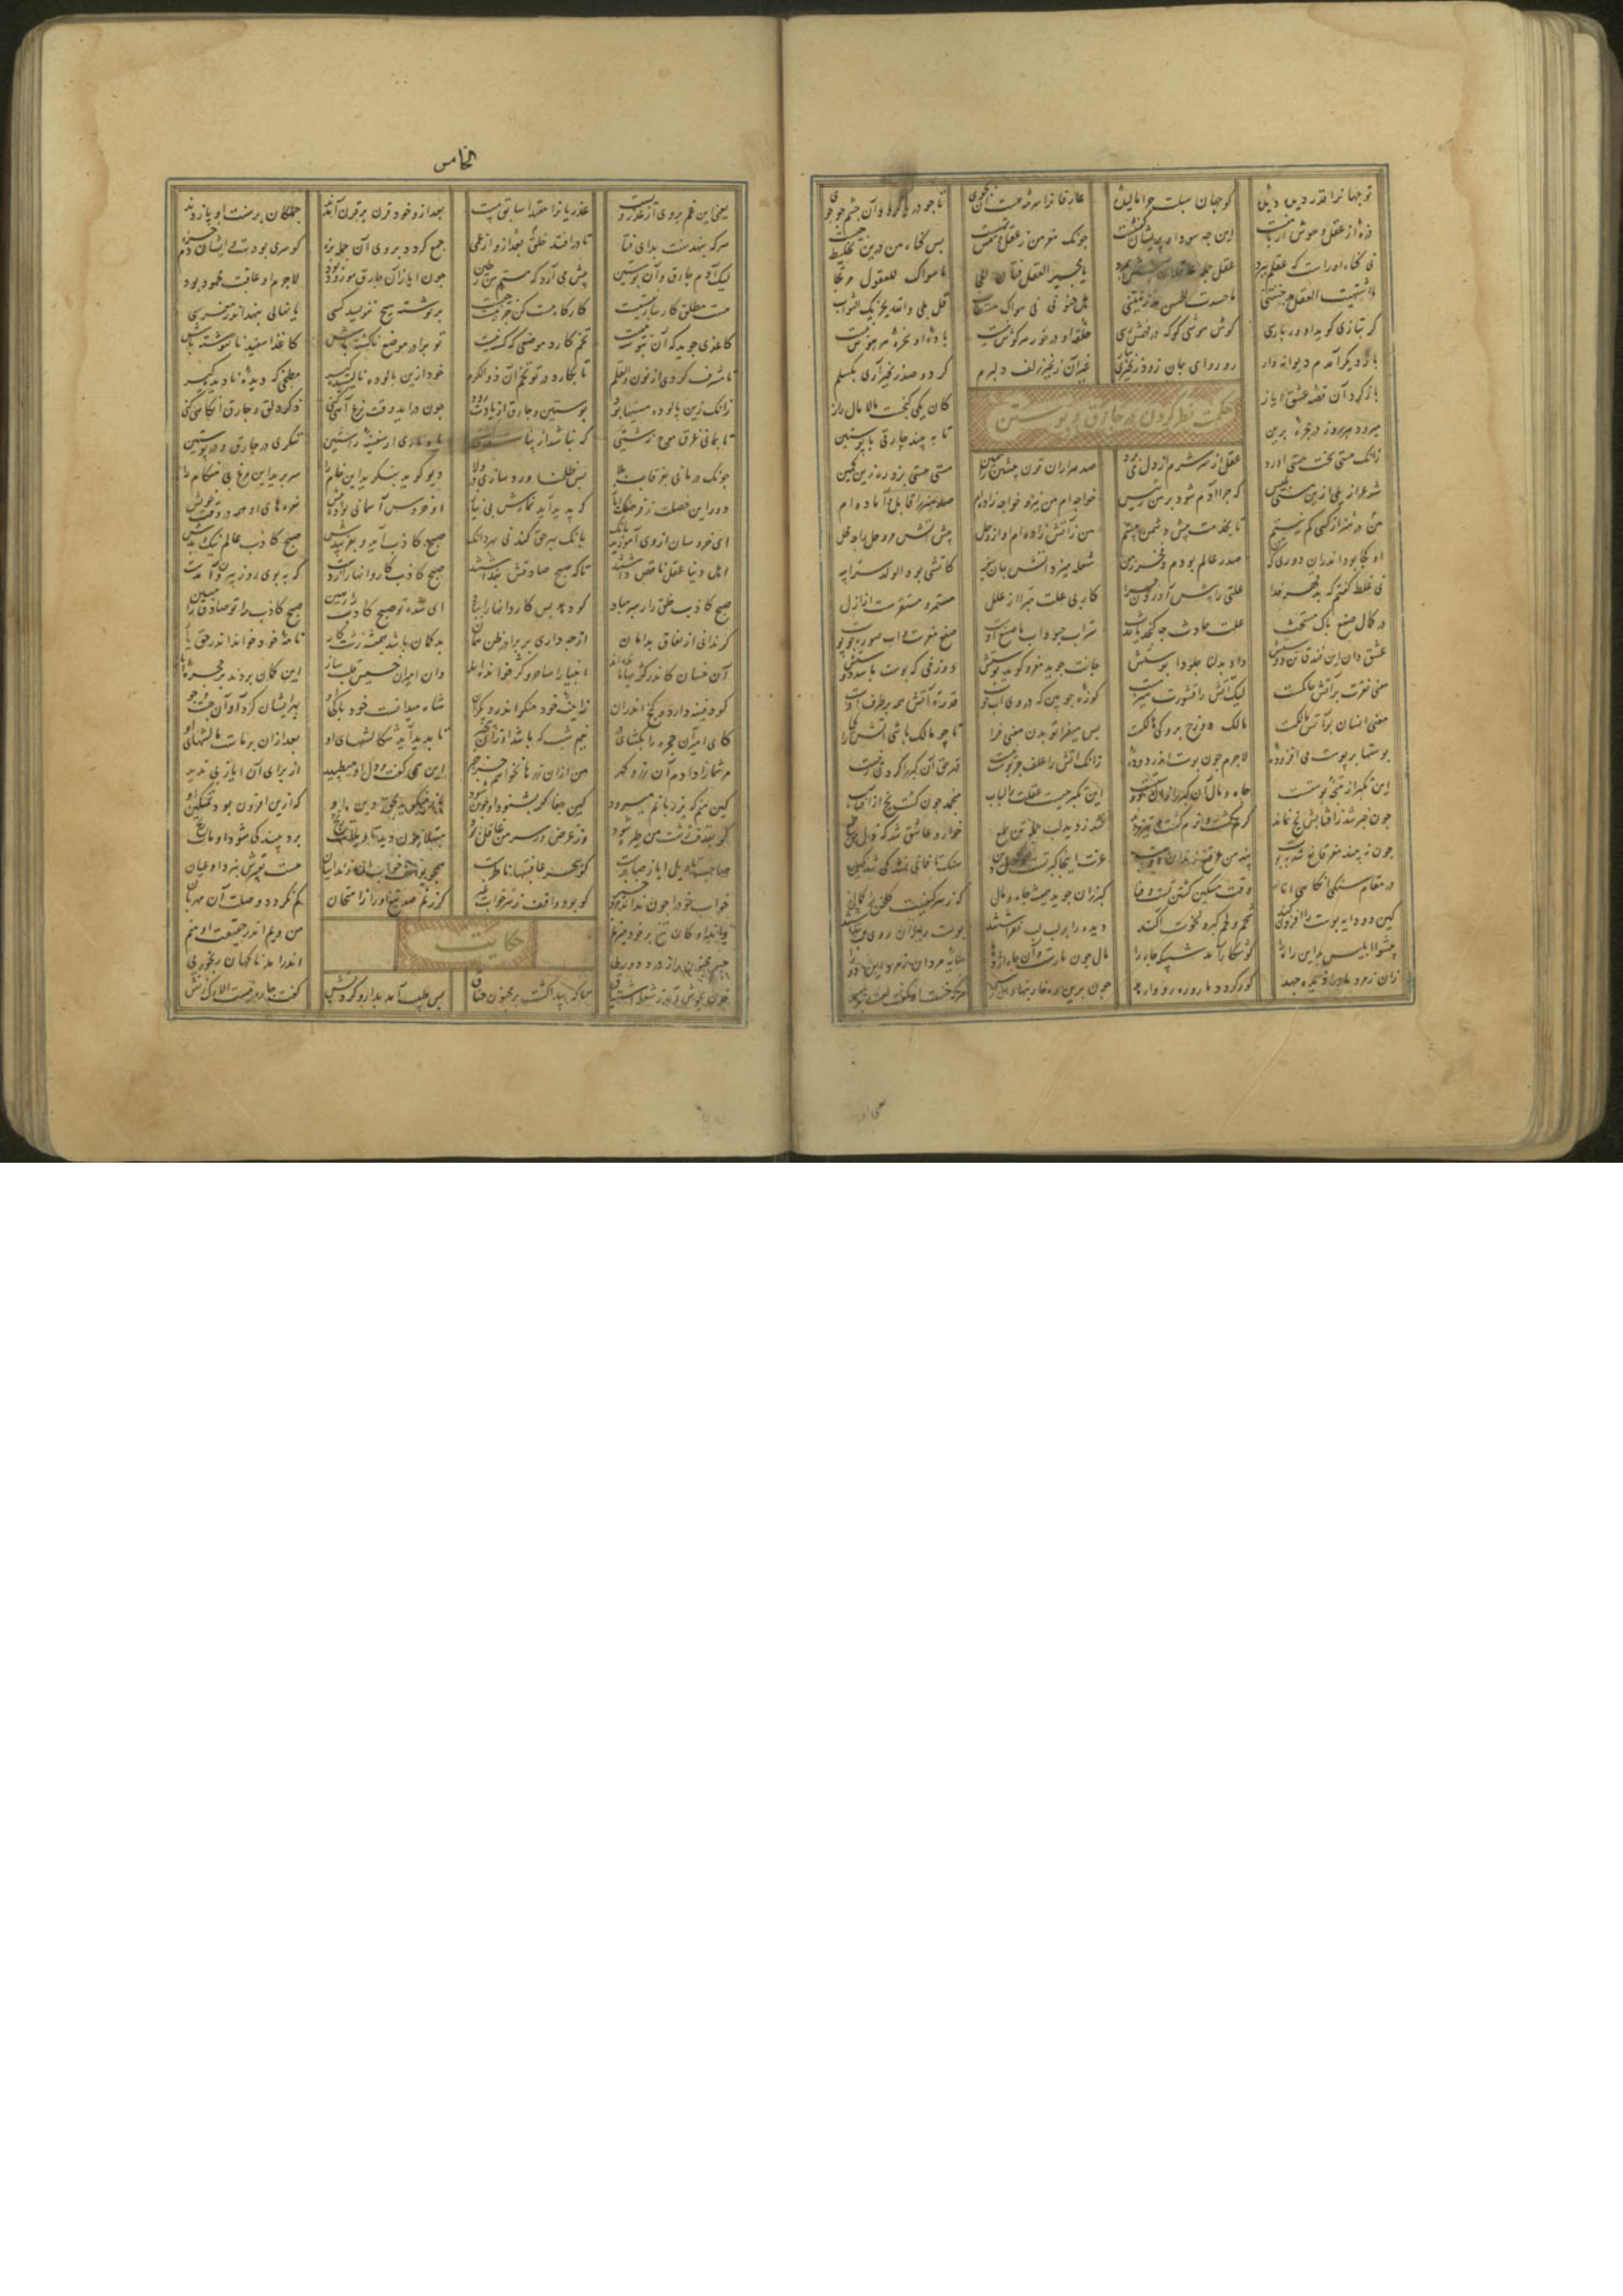 تو جهانرا قدر دیده دیدۀ کو جهان سبلت چرا مالیدۀ عارفانرا سرمه هست آن بجوی تا جو دریا گردد آن جشم جو جوی
ذرۀ از عقل و هوش ار با منست این جه سودا و پریشان گفتنست جونک مغز من ز عقل و هش تهیست بس گناه من درین تخلیط چیست
نی گناه اوراست که عقلم ببرد عقل جمله عاقلان پیشش بمرد یا مجیر العقل فتان الحجی ما سواک للعقول مرتجا
ما اشتهیت العقل مذ جننتنی ما حسدت الحسن مذ زینتنی هل جنونی فی هواک مستطاب قل بلی والله یجزیک الثواب
کر بتازی کوید او ور پارسی کوش و هوشی کو که در فهمش رسی حلقۀ او در خور هر کوش نیست بادۀ او سخرۀ هر هوش نیست
بار دیکر آمدم دیوانه وار رو رو ای جان زود زنجیری بیار غیر آن زنجیر زلف دلبرم کر دو صد زنجیر آری بکسلم
حکمت نظر کردن در جارق و پوستین
باز کرد آن قصه عشق ایاز کان یکی کنجیست مالامال راز
میرود هر روز در حجرۀ برین تا به بیند جارقی با پوستین
زانک هستی سخت مستی آورد عقل از سر شرم از دل می برد صد هزاران قرن پیشین را همین مستی هستی بزد ره زین کمین
شد عزازیلی ازین مستی بلیس که جرا آدم شود بر من رئیس خواجه ام من نیز و خواجه زاده ام صد هنر را قابل و آماده ام
در هنر من از کسی کم نیستم تا بخدمت پیش دشمن بیستم من ز آتش زاده ام او از وحل پیش آتش مر وحل را جه محل
او کجا بود اندران دوری که من صدر عالم بودم و فخر زمن شعله میزد آتش جان سفیه کاتشی بود الولد سر ابیه
نی غلط کفتم که بد قهر خدا علتی را پیش آوردن جرا کار بی علت مبرا از علل مستمر و مستقرست از ازل
در کمال صنع پاک مستحث علت حادث جه کنجد یا حدث سر آب جبود آب ما صنع اوست صنع مغزست و آب صورت جو پوست
عشق دان ای فندق تن دوستت جانت جوید مغز و کوبد پوستت دوزخی که پوست باشد دوستش داد بدلنا جلودا پوستش
معنی و مغزت بر آتش حاکمست لیک آتش را قشورت هیزمست کوزۀ جوبین که در وی آب جوست قدرت آتش همه بر ظرف اوست
معنی انسان بر آتش مالکست مالک دوزخ درو کی هالکست بس میفزا تو بدن معنی فزا تا جو مالک باشی آتش را کیا
پوستها بر پوست می افزودۀ لاجرم جون پوست اندر دودۀ زانک آتش را علف جز پوست نیست قهر حق آن کبر را کردن زنیست
این تکبر از نتیجۀ پوستست جاه و مال آن کبر را زان دوستست این تکبر جیست غفلت از لباب منجمد جون غفلت یخ از آفتاب
جون خبر شد ز آفتابش یخ نماند کرم کشت و نرم کشت و تیز راند شد ز دید لب جمله تن طمع خوار و عاشق شد که ذل من طمع
جون نبیند مغز قانع شد بپوست بند عز من قنع زندان اوست سنک تا فانی نشد کی شد نکین
در مقام سنکی آنکاهی انا وقت مسکین کشتن تست و فنا کبر زان جوید همیشه جاه و مال که ز سرکینست کلخن را کمال
کین دو دایه پوست را افزون کنند شحم و لحم کبر و نخوت آکنند دیده را بر لب لب نفراشتند پوست را زان روی لب پنداشتند
پیشوا ابلیس بود این راه را کو شکار آمد شبیکه جاه را مال جون مارست و آن جاه اژدها سایۀ مردان زمرد این دو را
زان زمرد مار را دیده جهد کور کردد مار و ره رو وارهد جون برین ره خار بنهاد آن رئیس هرکه خست او کفت لعنت بر بلیس
الخامس
یعنی این غم بروی از غدر ویست غدر را آن مقتدا سابق پیست بعد ازو خود قرن بر قرن آمدند جملکان بر سنت او پا زدند
هرکه بنهد سنت بد ای فتا تا در افتد خلق بعد او از عمی جمع کردد بر وی آن جمله بزه کو سری بودست و ایشان دم غزه
لیک آدم جارق و آن پوستین پیش می آرد که هستم من ز طین جون ایاز آن جارقش مورود بود لاجرم او عاقبت محمود بود
هست مطلق کارساز نیستیست کارکاه هست کن جز نیست جیست بر نوشته هیچ ننویسد کسی یا نهالی بنهد اندر مغرسی
کاغذی جوید که آن بنوشته نیست تخم کارد موضعی که کشته نیست تو برادر موضع ناکشته باش کاغذ اسفید نابنوشته باش
تا مشرف کردی از نون والقلم تا بکارد در تو تخم آن ذو الکرم خود ازین پالوده نالیسیده کیر مطبخی که دیدۀ نادیده کیر
زانک زین پالوده مستیها بود پوستین و جارق از یادت رود جون در آید وقت نزع آهی کنی ذکر دلق و جارق آنکاهی کنی
تا نمانی غرق موج زشتیی که نباشد از پناهی پشتیی یاد ناری از سفینۀ راستین ننکری در جارق و در پوستین
جونک درمانی بغرقاب بلا بس ظلمنا ورد سازی بر ولا دیو کوید بنکرید این خام را سر برید این مرغ بی هنکام را
دور این خصلت ز فرهنک ایاز که پدید آید نمازش بی نیاز او خروس آسمانی بوده پیش نعره های او همه در وقت خویش
ای خروسان از وی آموزید بانک بانک بهر حق کند نی بهر دانک صبح کاذب آید و نفریبدش صبح کاذب عالم نیک و بدش
اهل دنیا عقل ناقص داشتند تا که صبح صادقش پنداشتند صبح کاذب کاروانها را زدست که به بوی روز بیرون آمدست
صبح کاذب خلق را رهبر مباد کو دهد بس کاروانها را بباد ای شده تو صبح کاذب را رهین صبح کاذب را تو صادق
کر ندانی از نفاق بد امان از جه داری بر برادر ظن همان بد کمان باشد همیشه زشت کار نامۀ خود خواند اندر حق یار
آن خسان کاندر کژیها مانده اند انبیا را ساحر و کژ خوانده اند وان امیران خسیس قلب ساز این کمان بردند بر حجرۀ ایاز
کو دفینه دارد و کنج اندران زاینۀ خود منکر اندر دیکران شاه میدانست خود پاکی او بهر ایشان کرد او آن جست و جو
کای امیر آن حجره را بکشای در نیم شب که باشد او زان بی خبر تا بدید آید سکالشهای او بعد ازان بر ماست مالشهای او
مر شما را دادم آن زر و کهر من ازان زرها نخواهم جز خبر این همی کفت و دل او میطپید از برای آن ایاز بی ندید
کین منم که بر زبانم میرود کین جفا کر بشنود او جون شود باز میکوید بحق دین او که ازین افزون بود تمکین او
که بقذف زشت من طیره شود وز غرض وز سر من غافل بود مبتلا جون دید تاویلات رنج برد بیند کی شود او مات رنج
صاحب تاویل ایاز صابرست کو ببحر عاقبتها ناظرست همجو یوسف خواب این زندانیان هست تعبیرش بنزد او عیان
خواب خود را جون نداند مرد خیر کو بود واقف ز سر خواب غیر کر زنم صد تیغ او را ز امتحان کم نکردد وصلت آن مهربان
داند او کان تیغ بر خود میزنم من ویم اندر حقیقت او منم
حکایت
جسم مجنون را ز درد دوریی اندر آمد ناکهان رنجوریی
خون بجوش آمد ز شعلۀ اشتیاق تا که پیدا کشت بر مجنون خناق بس طبیب آمد بدارو کردنش کفت جاره نیست الا رک زنش